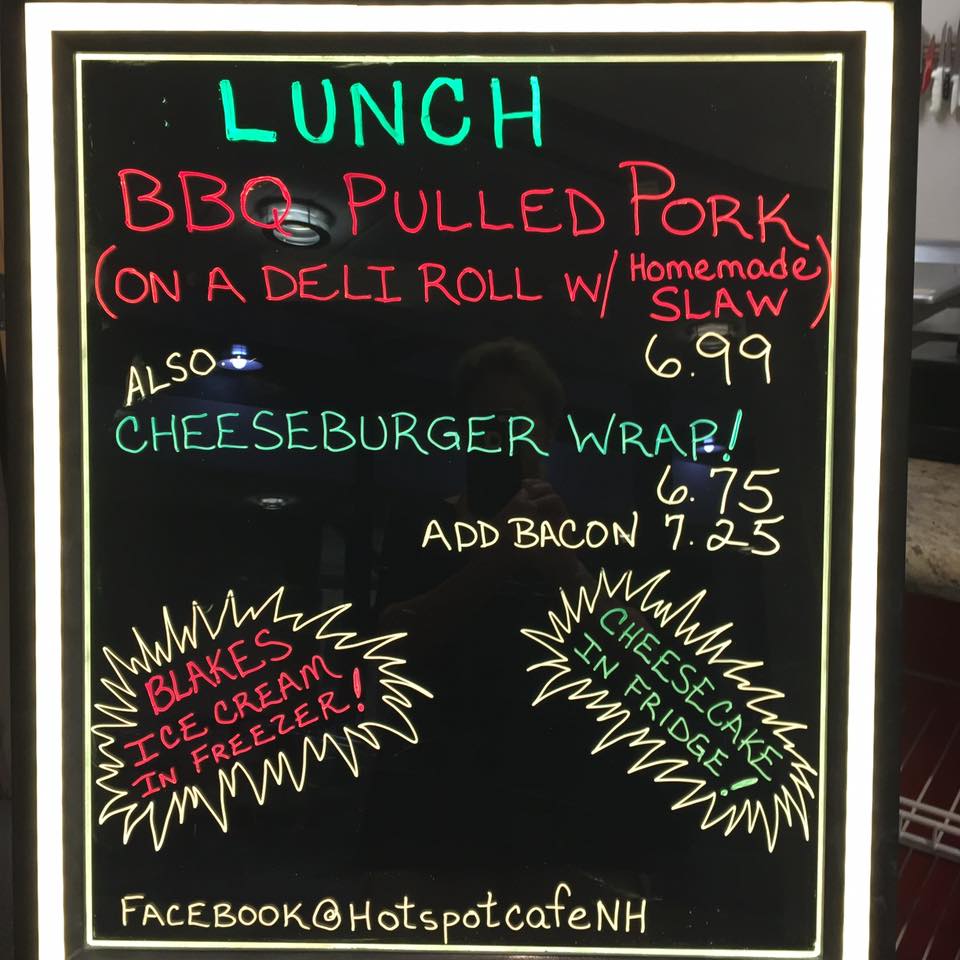 LUNCH
BBQ PULLED PORK
(ON A DELI ROLL W/ Homemade SLAW)
6.99
ALSO
CHEESEBURGER WRAP!
6.75
ADD BACON 7.25
BLAKES
ICE CREAM
IN FREEZER!
CHEESECAKE
IN FRIDGE!
FACEBOOK@HotspotcafeNH